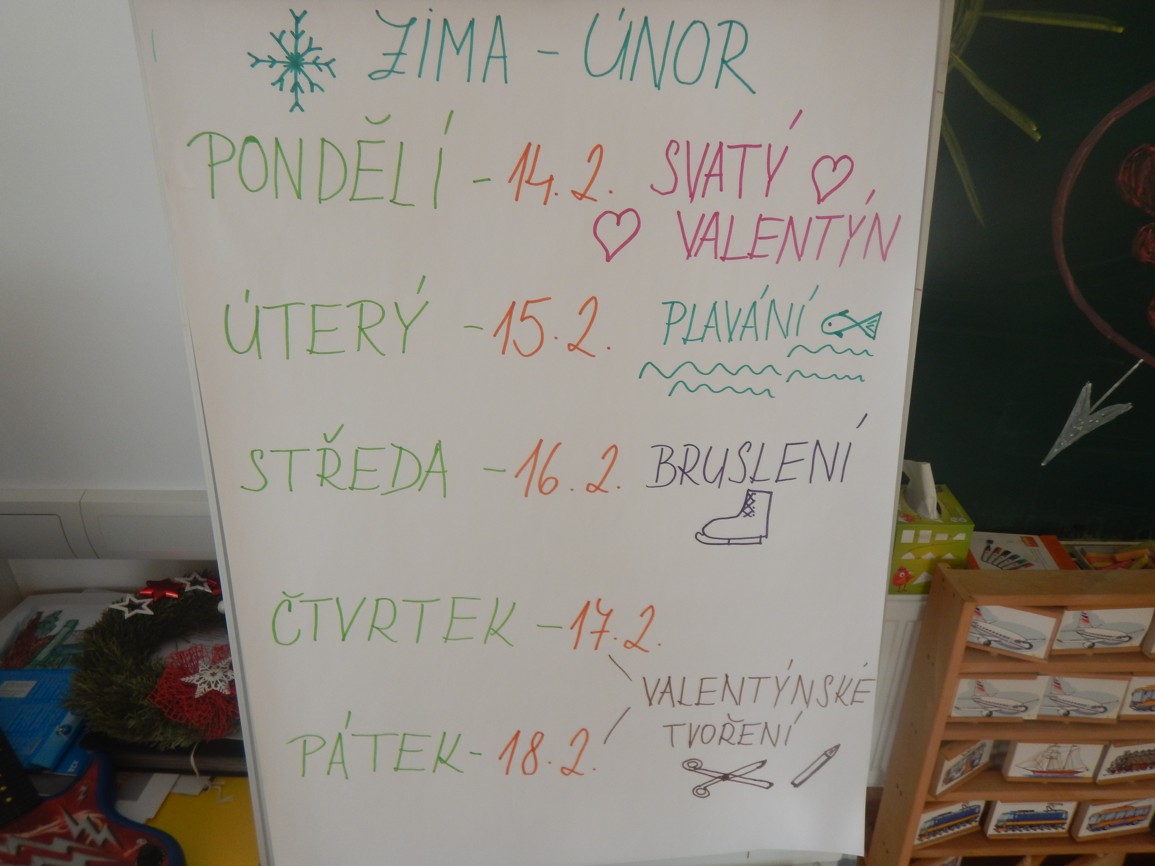 ZIMA - ÚNOR
PONDĚLÍ - 14.2. SVATÝ
VALENTÝN
ÚTERÝ - 15.2. PLAVÁNÍ
STŘEDA - 16.2. BRUSLENÍ
ČTVRTEK - 17.2.
VALENTÝNSKÉ
TVOŘENÍ
PÁTEK - 18.2.